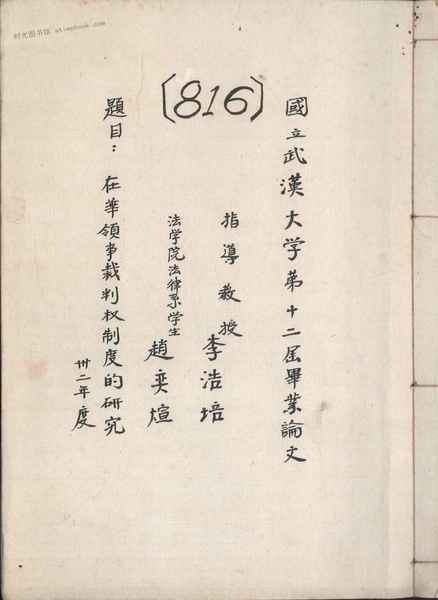 时光图书馆 atimebook.com
〔816〕
國立武漢大学第十二届畢業論文
指導教授
李浩培
法学院法律系学生
趙奕煊
題目：在華領事裁判权制度的研究
卅二年度